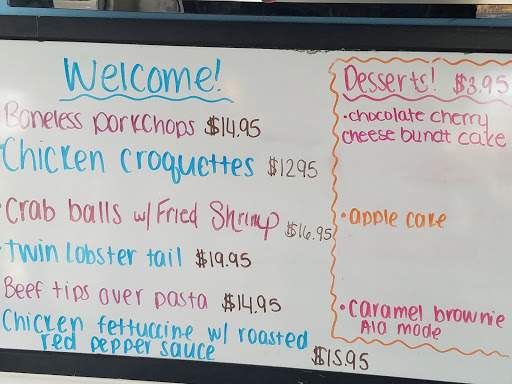 Welcome!
Boneless porkchops $14.95
Chicken croquettes $1295
Crab balls w/ Fried Shrimp $16.95
Twin Lobster tail $19.95
Beef tips over pasta $14.95
Chicken fettuccine w/ roasted
red pepper sauce $15.95
Desserts! $3.95
chocolate cherry
cheese bundt cake
apple cake
caramel brownie
Ala mode